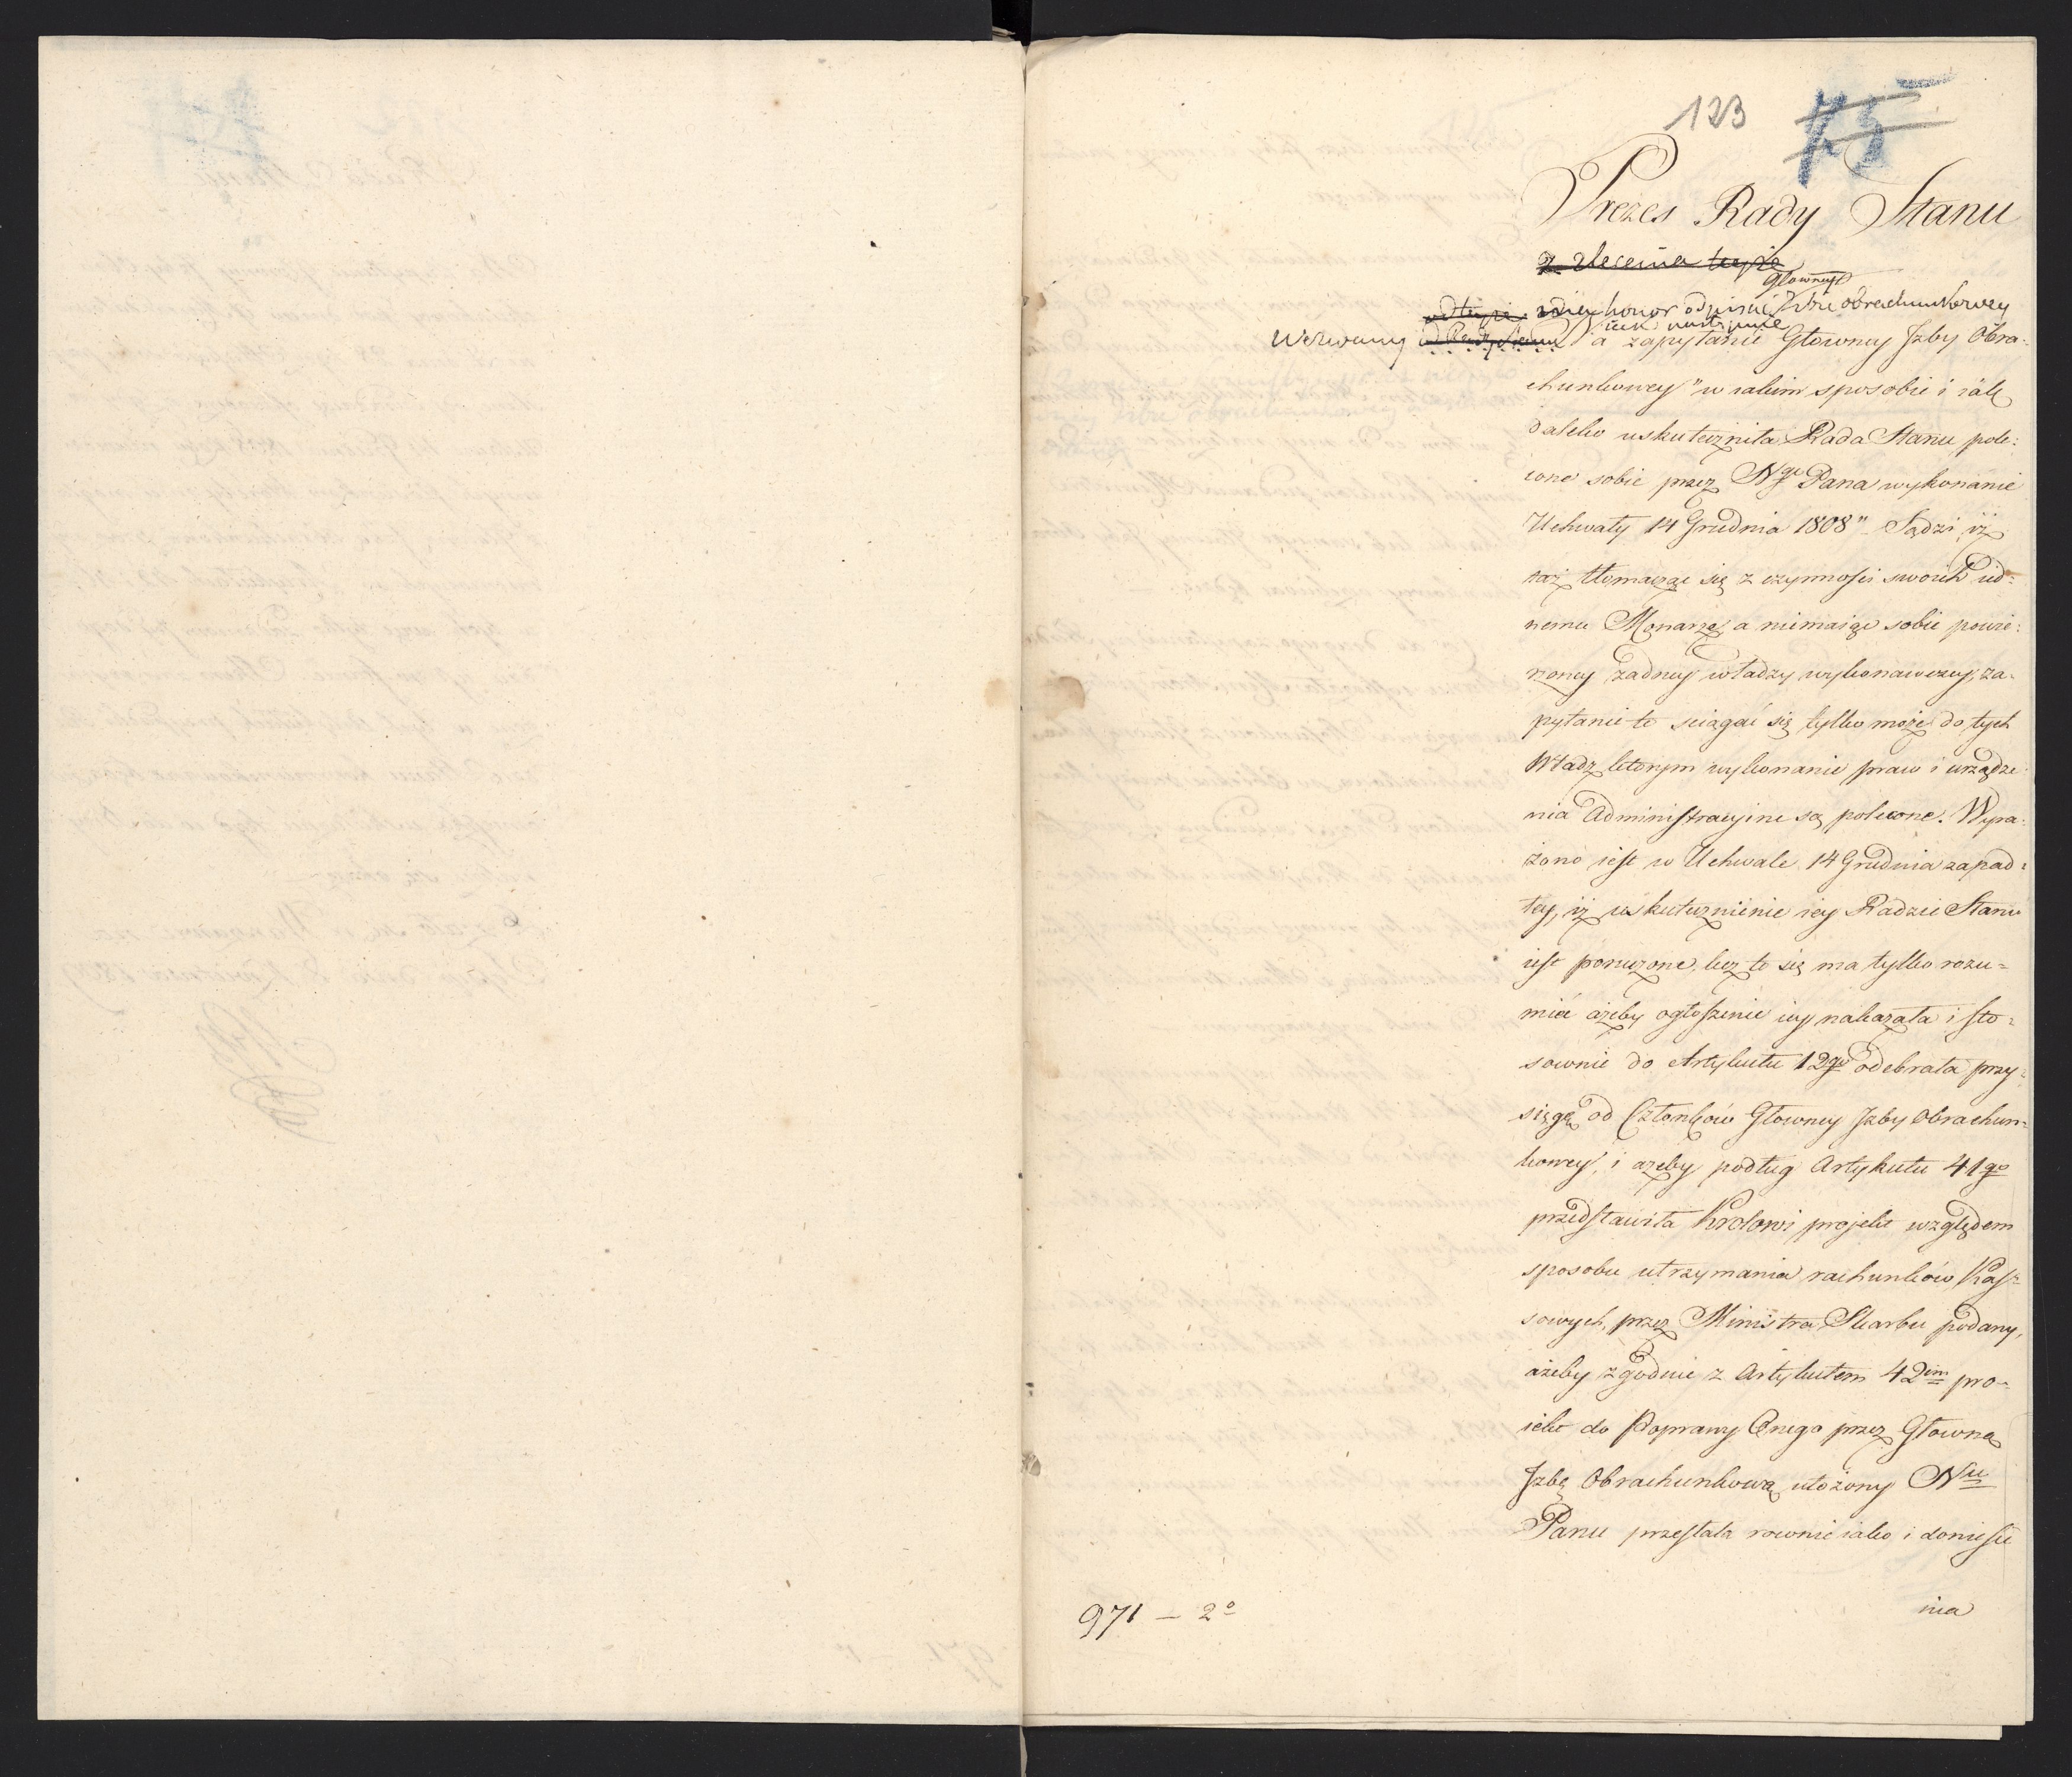 123 75
Prezes Rady Stanu
z zlecenia teyże
Główney
ma honor odpisać Izbie obrachunkowey
iak następuie
Wezwany od Rady Stanu Na zapytanie Głowney Jzby Obra:
chunkowey "w iakim sposobie i iak
daleko uskuteczniła Rada Stanu pole:
cone sobie przez Ngo Pana wykonanie
Uchwały 14 Grudnia 1808" Sądzi, iż
taż tłomacząc się z czynności swoich ied:
nemu Monarsze, a niemaiąc sobie powie:
rzoney żadney władzy wykonawczey, za:
pytanie to sciągać się tylko może do tych
Władz, którym wykonanie praw i urządze:
nia Administracyine są polecone. Wyra:
żono iest w Uchwale 14 Grudnia zapad:
łey, iż uskutecznienie iey Radzie Stanu
iest poruczone, lecz to się ma tylko rozu=
mieć ażeby ogłoszenie iey nakazała i sto=
sownie do Artykułu 12go odebrała przy:
sięgę od Członków Głowney Jzby Obrachun:
kowey, i ażeby podług Artykułu 41go
przedstawiła Krolowi projekt względem
sposobu utrzymania rachunków Kas=
sowych, przez Ministra Skarbu podany,
ażeby zgodnie z Artykułem 42im pro=
iekt do Poprawy Onego przez Głowną
Jzbę Obrachunkową ułożony Nu
Panu przesłała rownie iako i doniesie
nia
971 — 2o